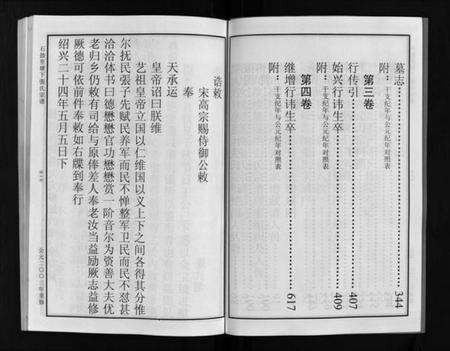 墓志……344
附：干支纪年与公元纪年对照表
第三卷
行传引……407
始兴行讳生卒……409
附：干支纪年与公元纪年对照表
第四卷
继增行讳生卒……617
附：干支纪年与公元纪年对照表
诰敕
宋高宗赐侍御公敕
奉
天承运
皇帝诏曰朕维
艺祖皇帝立国以仁维国以义上下之间各得其分惟
尔抚民张子先赋民养军而民不惮整军卫民而民不怼甚
洽洽体书曰德懋懋官功懋懋赏一阶音尔为资善大夫优
老归乡仍敕有司给与原俸差人奉老汝当益励厥志益修
厥德可依前件奉敕如右牒到奉行
绍兴二十四年五月五日下
公元二〇〇二年重修